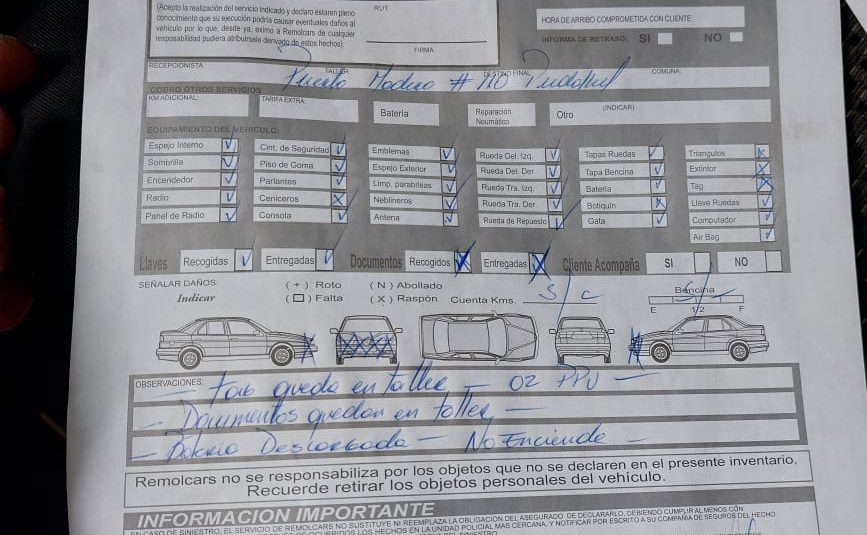 (Acepto la realización del servicio indicado y declaro estaren pleno
conocimiento que su ejecución podría causar eventuales daños al
vehículo por lo que, desde ya, eximo a Remolcars de cualquier
responsabilidad pudiera atribuirsele derivado de estos hechos).
RUT
FIRMA
HORA DE ARRIBO COMPROMETIDA CON CLIENTE:
INFORMA DE RETRASO: SI NO
RECEPCIONISTA: TALLER: DESTINO FINAL: COMUNA:
Puerto Madero # Pudahuel
COBRO OTROS SERVICIOS
KM ADICIONAL: TARIFA EXTRA: Batería Reparación Neumático Otro (INDICAR)
EQUIPAMIENTO DEL VEHICULO:
Espejo Interno Cint. de Seguridad Emblemas Rueda Del. Izq. Tapas Ruedas Triangulos
Sombrilla Piso de Goma Espejo Exterior Rueda Del. Der. Tapa Bencina Extintor
Encendedor Parlantes Limp. parabrisas Rueda Tra. Izq. Bateria Tag
Radio Ceniceros Neblineros Rueda Tra. Der. Botiquín Llave Ruedas
Panel de Radio Consola Antena Rueda de Repuesto Gata Computador
Air Bag
Llaves Recogidas Entregadas Documentos Recogidos Entregadas Cliente Acompaña SI NO
SEÑALAR DAÑOS: ( + ) Roto ( N ) Abollado
Indicar ( □ ) Falta ( X ) Raspón Cuenta Kms. S/C Bencina
E 1/2 F
OBSERVACIONES: queda en taller — 02 PPU —
— Documentos quedan en taller —
— Bateria Descargada — No Enciende —
Remolcars no se responsabiliza por los objetos que no se declaren en el presente inventario.
Recuerde retirar los objetos personales del vehículo.
INFORMACION IMPORTANTE
EN CASO DE SINIESTRO, EL SERVICIO DE REMOLCARS NO SUSTITUYE NI REEMPLAZA LA OBLIGACION DEL ASEGURADO DE DECLARARLO, DEBIENDO CUMPLIR AL MENOS CON:
OCURRIDOS LOS HECHOS EN LA UNIDAD POLICIAL MAS CERCANA, Y NOTIFICAR POR ESCRITO A SU COMPAÑIA DE SEGUROS DEL HECHO